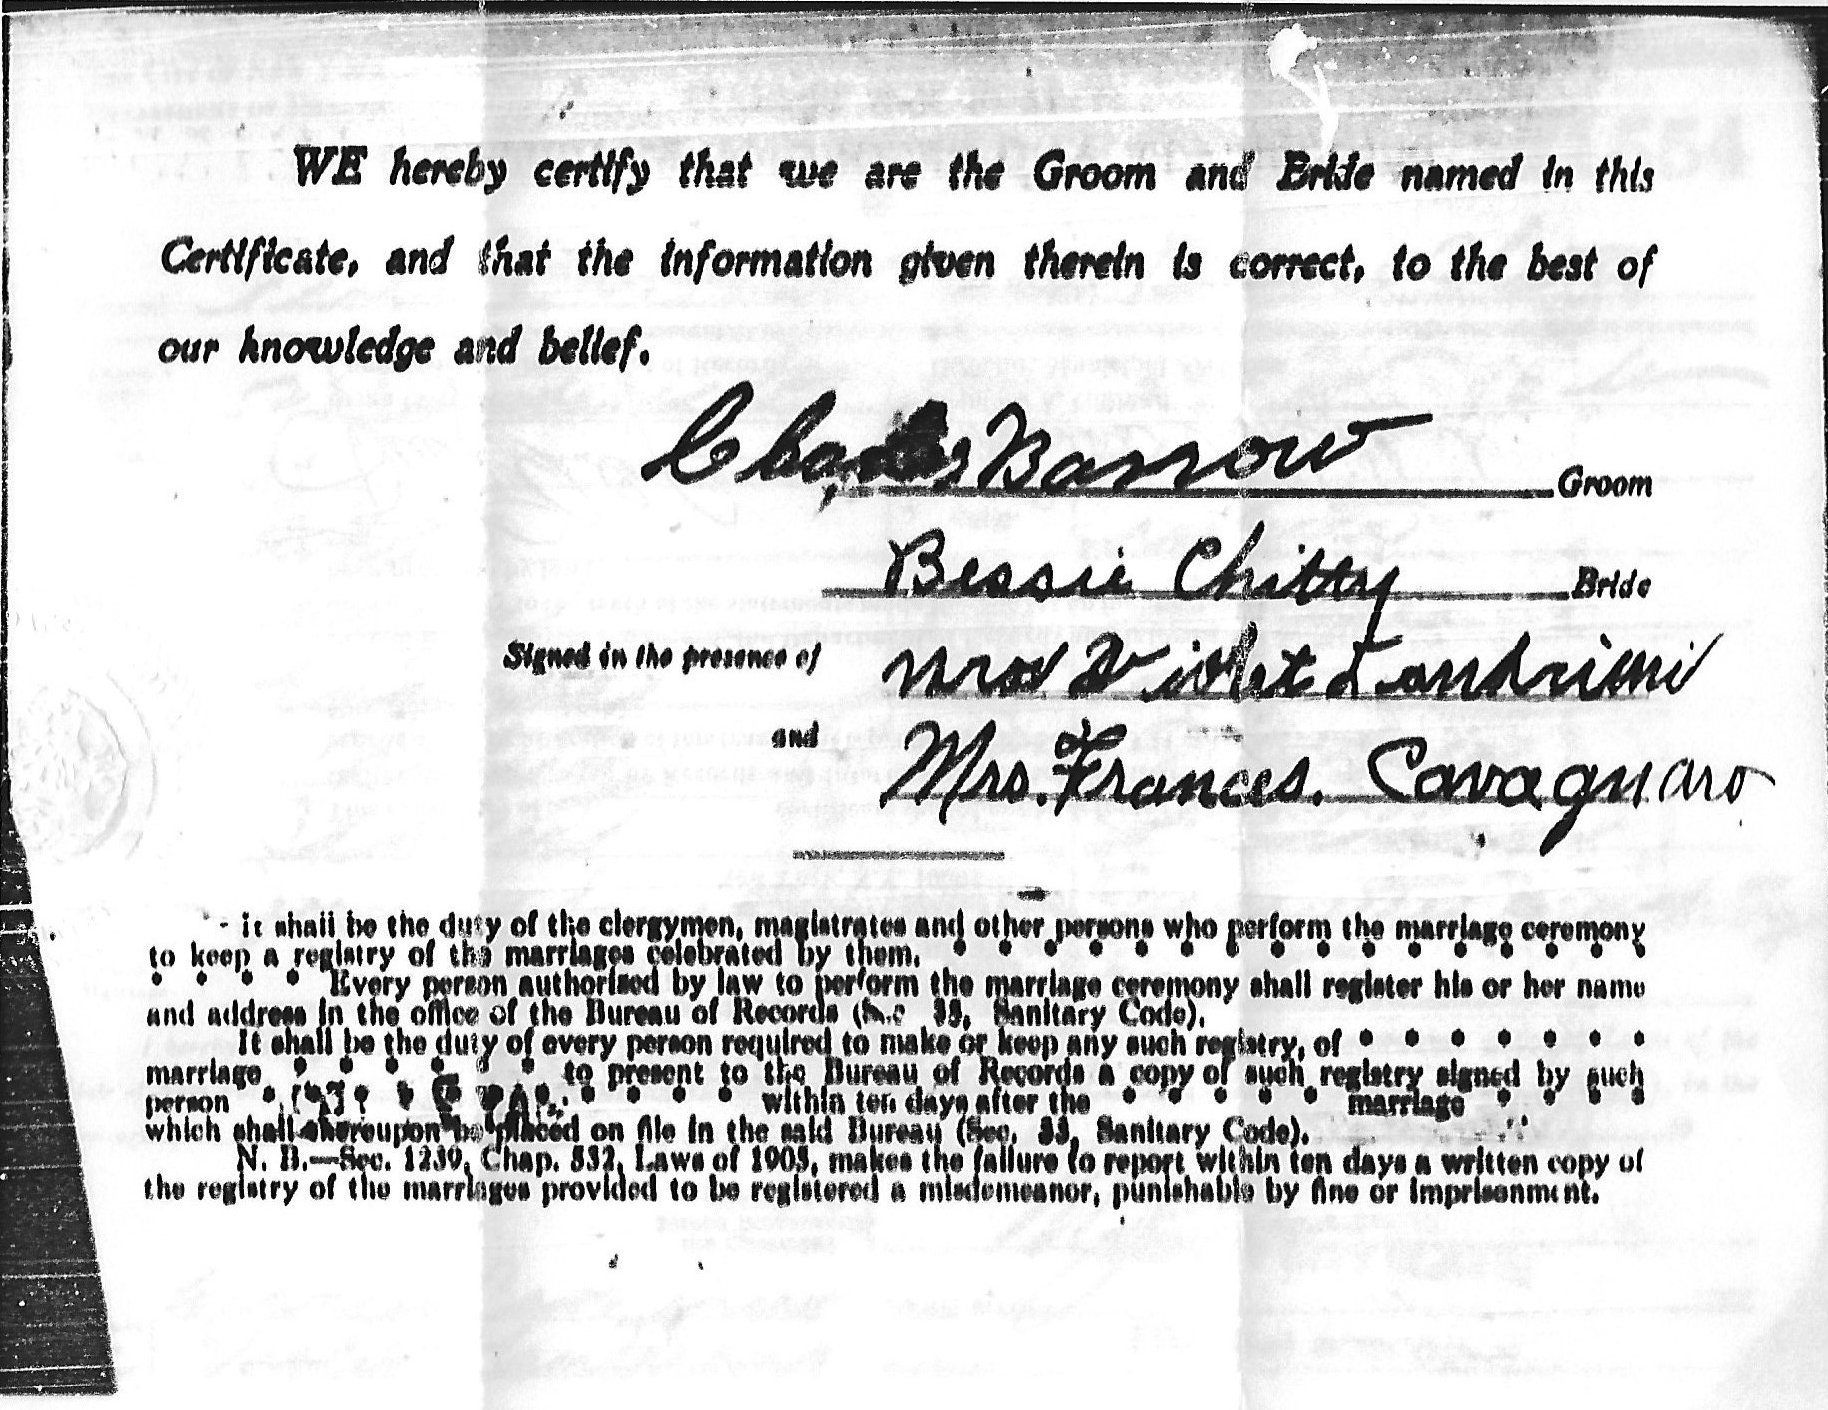 WE hereby certify that we are the Groom and Bride named in this
Certificate, and that the information given therein is correct, to the best of
our knowledge and belief.
Charles Barrow Groom
Bessie Chitty Bride
Signed in the presence of Mrs Violet
and Mrs. Frances. Cavagnaro
it shall be the duty of the clergymen, magistrates and other persons who perform the marriage ceremony
to keep a registry of the marriages celebrated by them. • • • • • • • • • • • • • • • •
• • • • Every person authorised by law to perform the marriage ceremony shall register his or her name
and address in the office of the Bureau of Records (Sec 33, Sanitary Code).
It shall be the duty of every person required to make or keep any such registry, of • • • • • • •
marriage • • • • • • to present to the Bureau of Records a copy of such registry signed by such
person • • • • • within ten days after the • • • • • marriage • • • •
which shall thereupon be placed on file in the said Bureau (Sec. 33, Sanitary Code).
N. B.—Sec. 1239, Chap. 532, Laws of 1905, makes the failure to report within ten days a written copy of
the registry of the marriages provided to be registered a misdemeanor, punishable by fine or imprisonment.